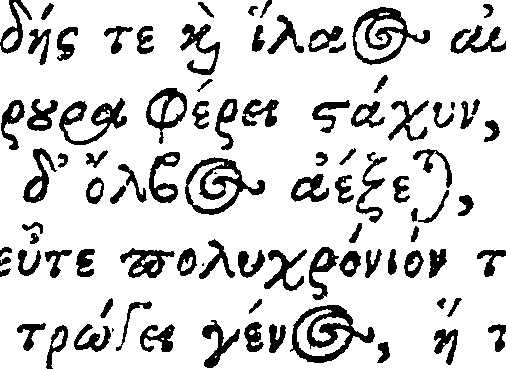 δής τε καὶ ἵλαος αὐ
ρουρα φέρει στάχυν,
δ' ὄλβος ἀέξεται,
εὖτε πολυχρόνιόν τ
τρώσει γένος, ἤ τ